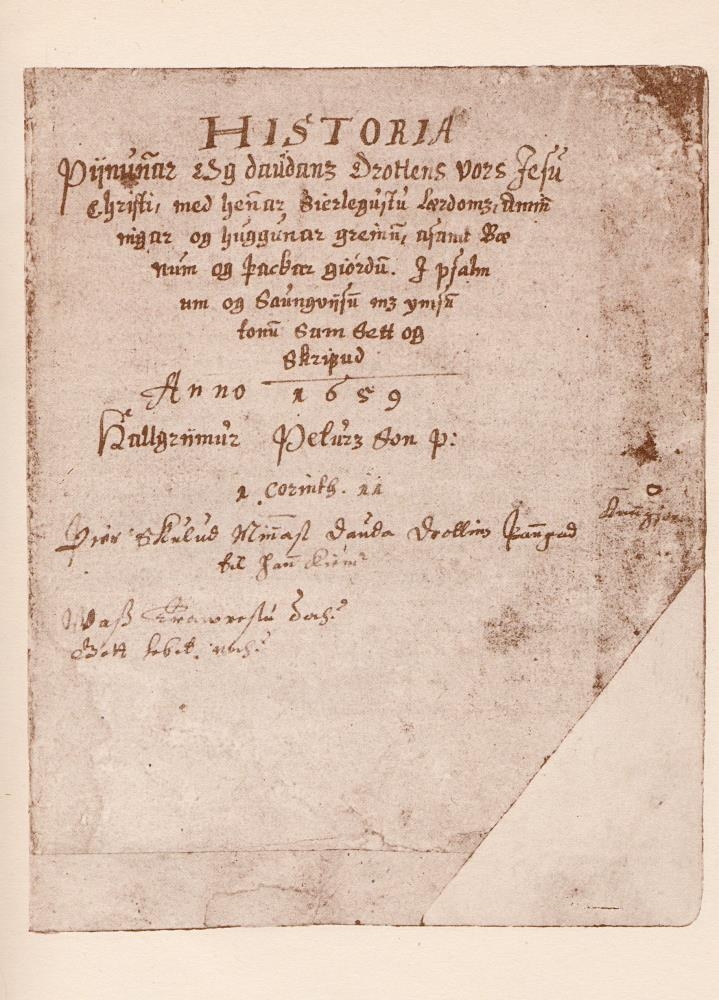 HISTORIA
Pijnun̄ar Og daudans Drottens vors Jesu
Christi, med hen̄ar Sierlegustu Lærdoms, āmin̄
ningar og huggunar greinū, asamt Bæ
num og þackar giördū. I psalm
um og Saungvijsū mz ymsū
tonū Sam Sett og
Skripud
Anno 1659
Hallgrijmur Peturs Son p:
1 Corinth. 11
Þier Skulud Min̄ast dauda Drottins þan̄gad
til han̄ kiemr
Waß Trawrestu doch?
Gott lebet noch?